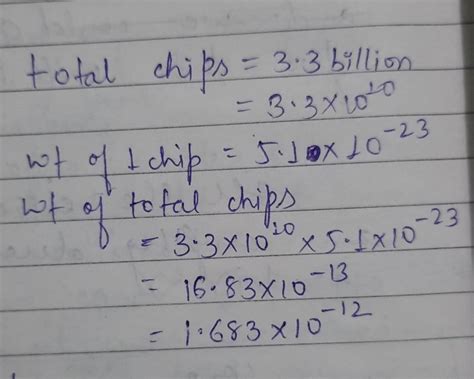 total chips = 3.3 billion
= 3.3×10¹⁰
wt of 1 chip = 5.1 × 10⁻²³
wt of total chips
= 3.3×10¹⁰ × 5.1×10⁻²³
= 16.83×10⁻¹³
= 1.683×10⁻¹²